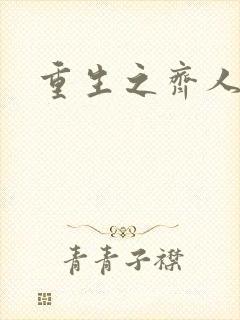 重生之齐人
青青子襟